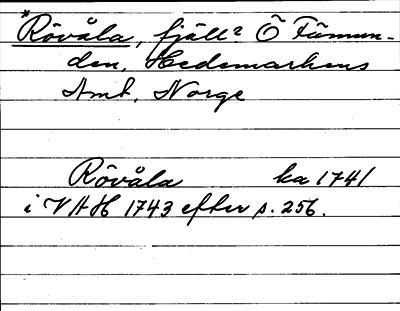 *Rövåla, fjäll? Ö Fämun-
den, Hedemarkens
Amt, Norge
Rövåla ka 1741
i VAH 1743 efter s. 256.